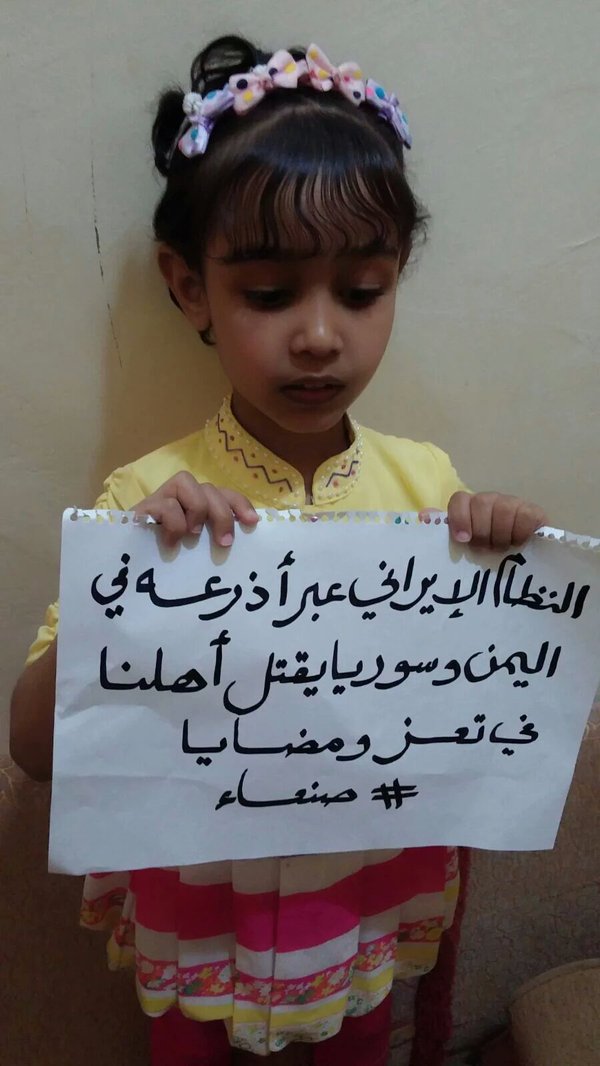 النظام الإيراني عبر أذرعه في
اليمن وسوريا يقتل أهلنا
في تعز ومضايا
# صنعاء